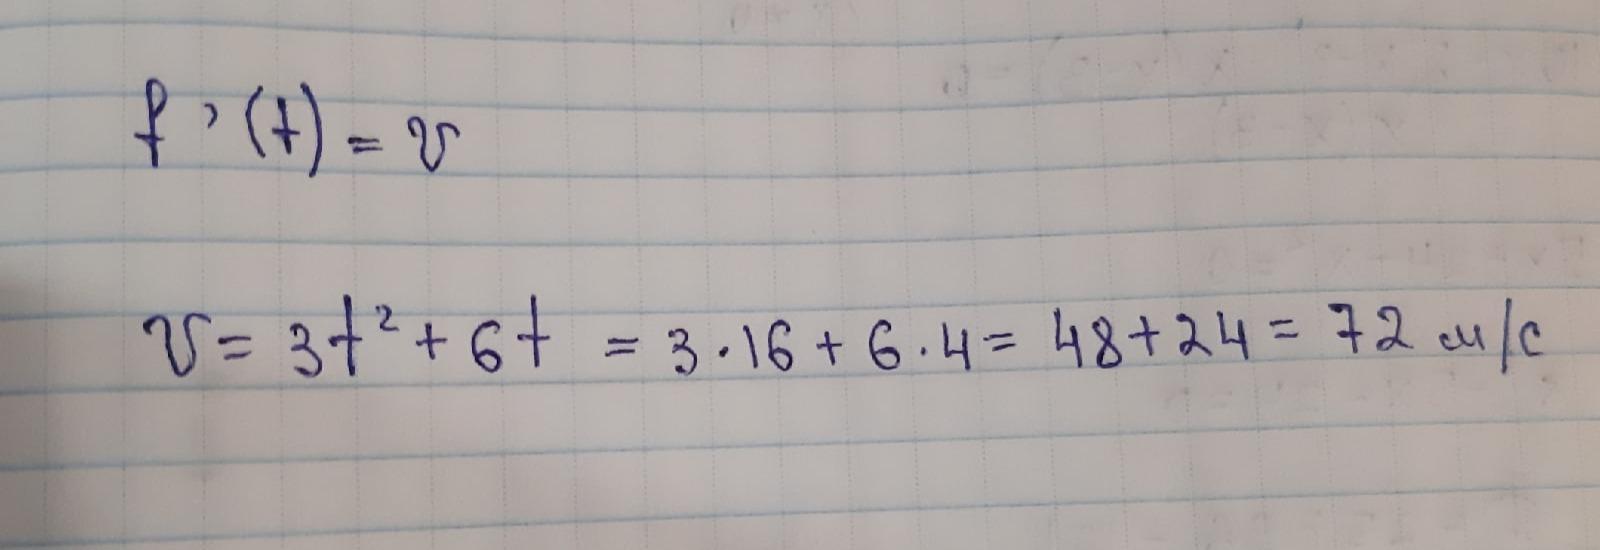 f'(t) = v
v = 3t² + 6t = 3·16 + 6·4 = 48 + 24 = 72 м/с